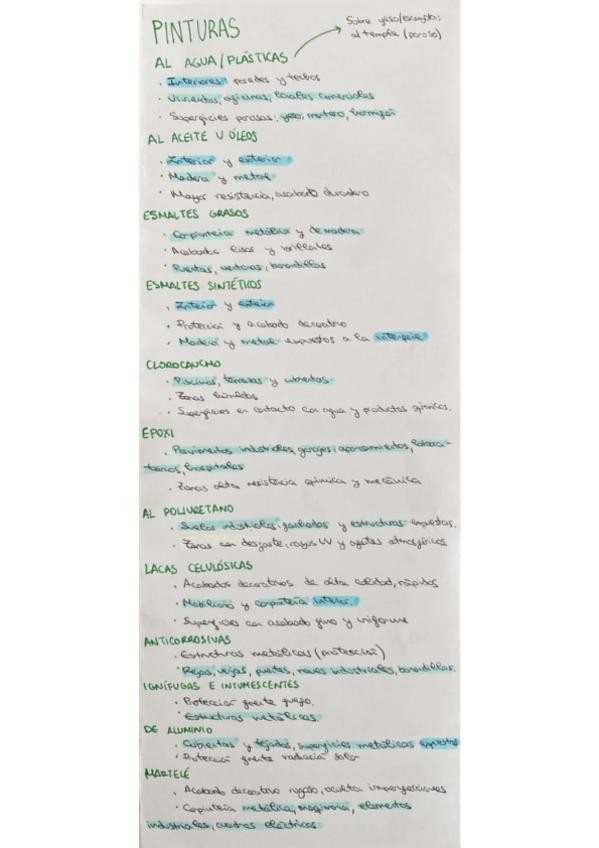 PINTURAS
Sobre yeso/escayola:
al temple (poroso)
AL AGUA/PLÁSTICAS
· Interiores: paredes y techos
· Viviendas, oficinas, locales comerciales
· Superficies porosas: yeso, mortero, hormigón
AL ACEITE U ÓLEOS
· Interior y exterior
· Madera y metal
· Mayor resistencia, acabado duradero
ESMALTES GRASOS
· Carpintería metálica y de madera
· Acabados lisos y brillantes
· Puertas, ventanas, barandillas
ESMALTES SINTÉTICOS
· Interior y exterior
· Protección y acabado decorativo
· Madera y metal expuestos a la intemperie
CLOROCAUCHO
· Piscinas, terrazas y cubiertas
· Zonas húmedas
· Superficies en contacto con agua y productos químicos.
EPOXI
· Pavimentos industriales, garajes, aparcamientos, labora-
torios, hospitales
· Zonas alta resistencia química y mecánica
AL POLIURETANO
· Suelos industriales, fachadas y estructuras expuestas.
· Zonas con desgaste, rayos UV y agentes atmosféricos
LACAS CELULÓSICAS
· Acabados decorativos de alta calidad, rápidos
· Mobiliario y carpintería interior.
· Superficies con acabado fino y uniforme
ANTICORROSIVAS
· Estructuras metálicas (protección)
· Rejas, vigas, puertas, naves industriales, barandillas.
IGNÍFUGAS E INTUMESCENTES
· Protección frente fuego.
· Estructuras metálicas.
DE ALUMINIO
· Cubiertas y tejados, superficies metálicas expuestas
· Protección frente radiación solar
MARTELÉ
· Acabado decorativo rugoso, oculta imperfecciones
· Carpintería metálica, maquinaria, elementos
industriales, cuadros eléctricos